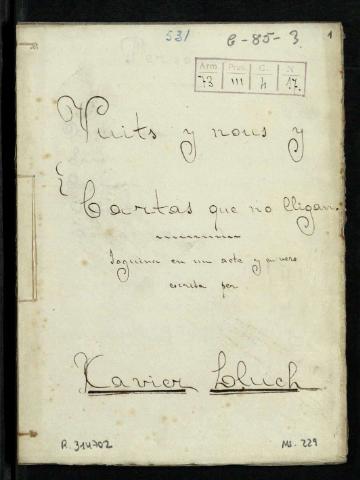 531 C-85-3. 1
Arm. Pres. C. N.
73 III h 17.
Vuits y nous y
Cartas que no lligan.
Joguina en un acte y en vers
escrita per
Xavier Lluch
R. 314702 Ms. 229